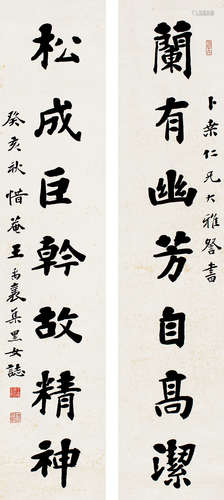 蘭有幽芳自高潔
卜棠仁兄大雅詧書
松成巨幹故精神
癸亥秋惜菴王禹襄集黑女誌